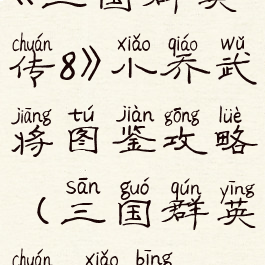 《三国群英
chuán xiǎo qiáo wǔ
传8》小乔武
jiāng tú jiàn gōng lüè
将图鉴攻略
sān guó qún yīng
(三国群英
chuán xiǎo bīng